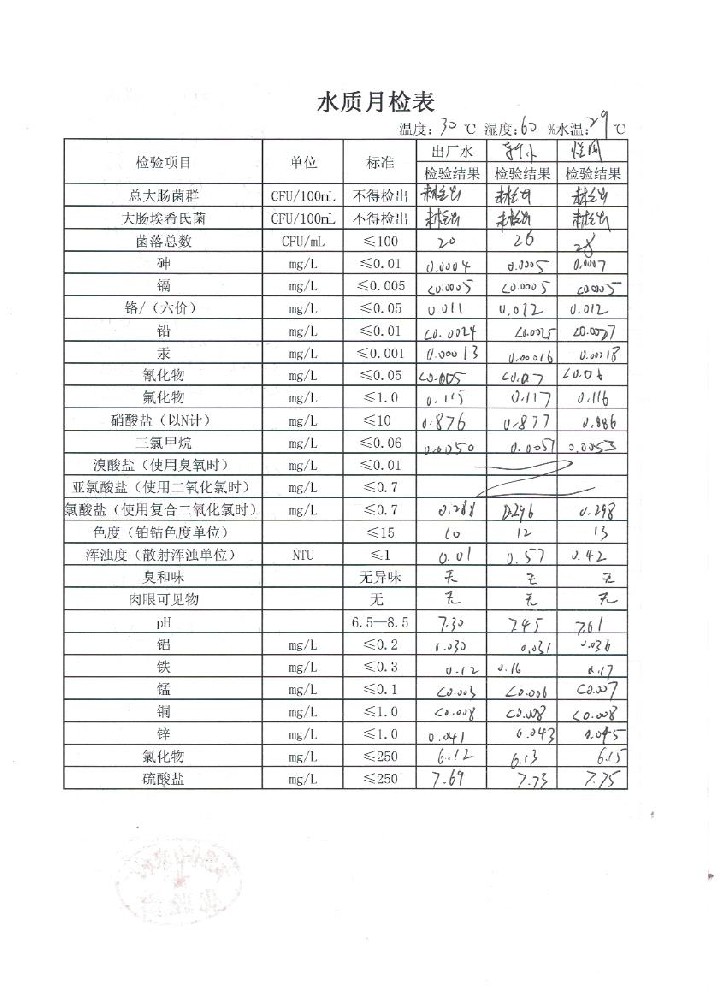 水质月检表
温度: 30 ℃ 湿度: 60 %水温: 29 ℃
检验项目 单位 标准 出厂水
检验结果 检验结果 检验结果
总大肠菌群 CFU/100mL 不得检出 未检出 未检出 未检出
大肠埃希氏菌 CFU/100mL 不得检出 未检出 未检出 未检出
菌落总数 CFU/mL ≤100 20 26 28
砷 mg/L ≤0.01 0.0004 0.0005 0.0007
镉 mg/L ≤0.005 <0.0005 <0.0005 <0.0005
铬/(六价) mg/L ≤0.05 0.011 0.012 0.012
铅 mg/L ≤0.01 <0.0024 <0.0025 <0.0027
汞 mg/L ≤0.001 0.00013 0.00016 0.00018
氰化物 mg/L ≤0.05 <0.005 <0.07
氟化物 mg/L ≤1.0 0.115 0.117 0.116
硝酸盐（以N计） mg/L ≤10 0.876 0.877 0.886
三氯甲烷 mg/L ≤0.06 0.0050 0.0051 0.0053
溴酸盐（使用臭氧时） mg/L ≤0.01
亚氯酸盐（使用二氧化氯时） mg/L ≤0.7
氯酸盐（使用复合二氧化氯时） mg/L ≤0.7 0.296 0.298
色度（铂钴色度单位） ≤15 10 12 13
浑浊度（散射浑浊单位） NTU ≤1 0.01 0.57 0.42
臭和味 无异味 无 无 无
肉眼可见物 无 无 无 无
pH 6.5—8.5 7.30 7.45 7.61
铝 mg/L ≤0.2 0.031 0.036
铁 mg/L ≤0.3 0.12 0.16 0.17
锰 mg/L ≤0.1 <0.003 <0.006 <0.007
铜 mg/L ≤1.0 <0.008 <0.008 <0.008
锌 mg/L ≤1.0 0.041 0.043 0.045
氯化物 mg/L ≤250 6.12 6.13 6.15
硫酸盐 mg/L ≤250 7.69 7.73 7.75